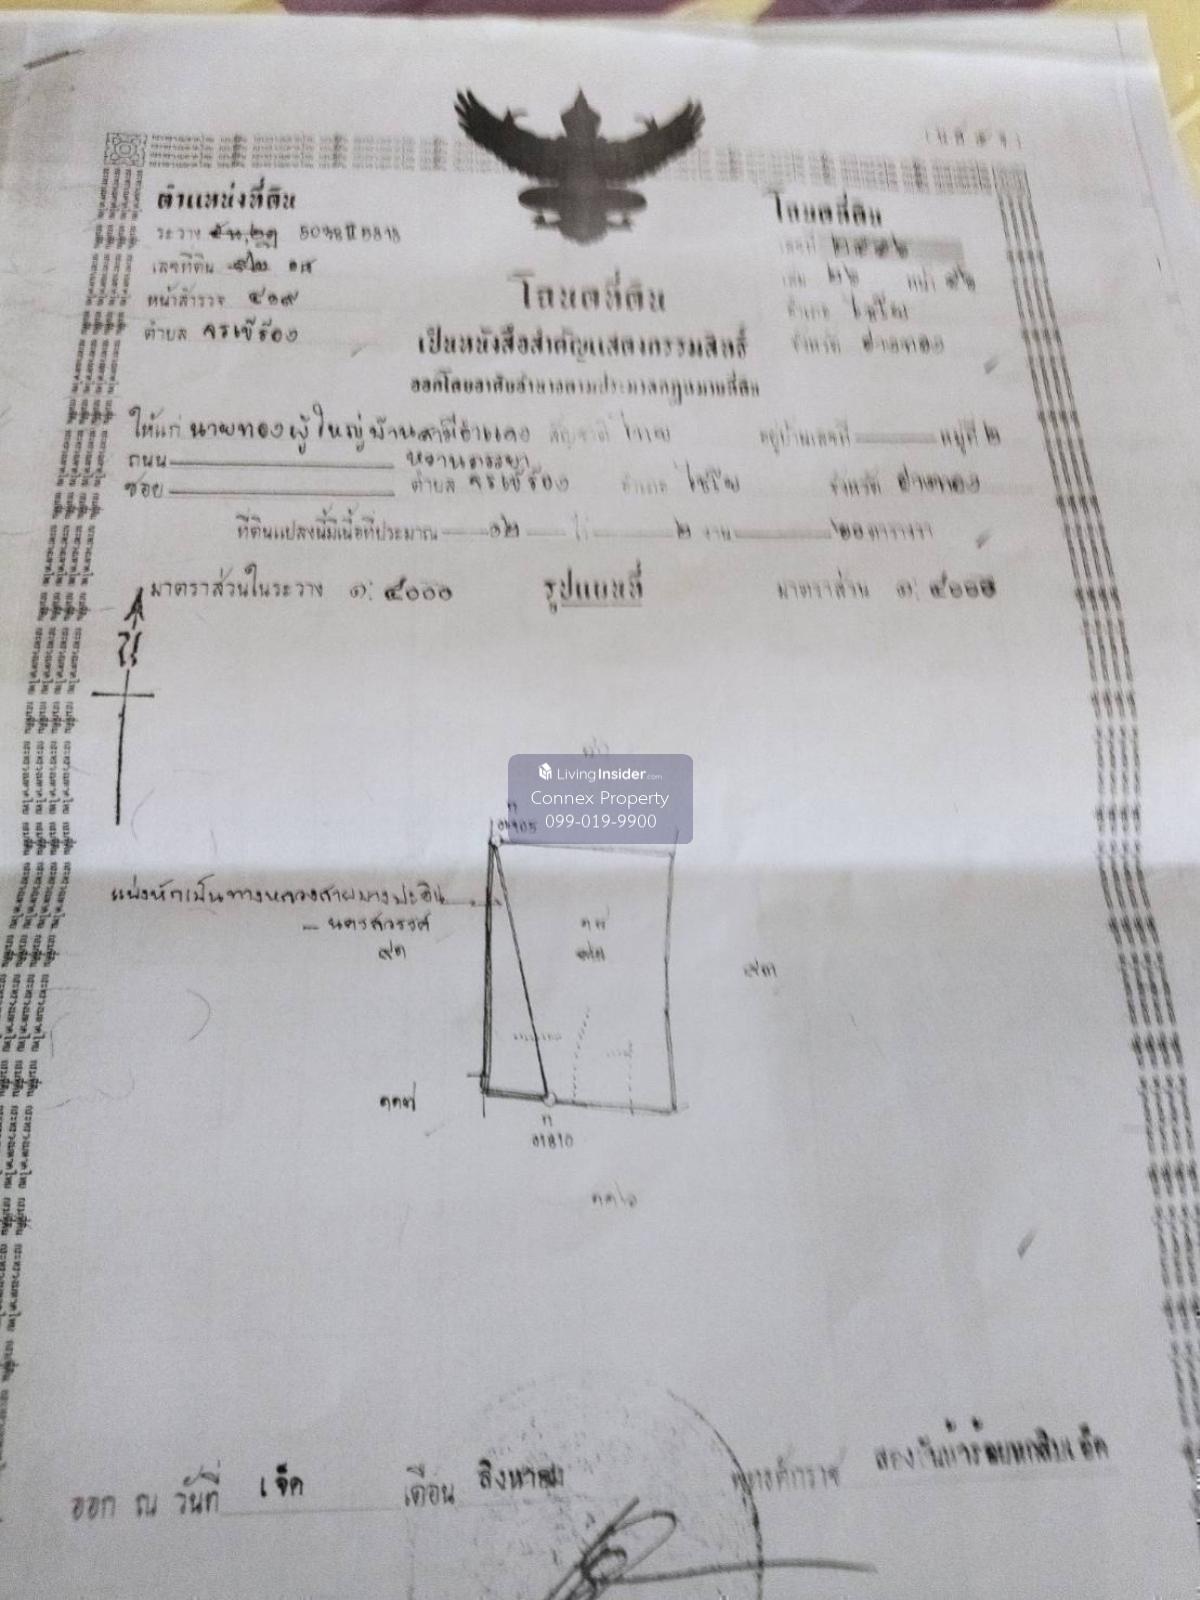 ตำแหน่งที่ดิน
ระวาง 5038 II 5818
เลขที่ดิน
หน้าสำรวจ ๔๑๙
ตำบล จรเข้ร้อง
โฉนดที่ดิน
เลขที่
เล่ม ๒๖ หน้า ๑๖
อำเภอ ไชโย
จังหวัด อ่างทอง
โฉนดที่ดิน
เป็นหนังสือสำคัญแสดงกรรมสิทธิ์
ออกโดยอาศัยอำนาจตามประมวลกฎหมายที่ดิน
ให้แก่ นายทองผู้ใหญ่บ้านสามีอำแดง สัญชาติ ไทย อยู่บ้านเลขที่ หมู่ที่ ๒
ถนน หวานภรรยา
ซอย ตำบล จรเข้ร้อง อำเภอ ไชโย จังหวัด อ่างทอง
ที่ดินแปลงนี้มีเนื้อที่ประมาณ ๑๒ ไร่ ๒ งาน ๒๐ ตารางวา
มาตราส่วนในระวาง ๑ : ๔๐๐๐ รูปแผนที่ มาตราส่วน ๑ : ๔๐๐๐
น
LivingInsider.com
Connex Property
099-019-9900
แบ่งหักเป็นทางหลวงสายบางปะอิน
– นครสวรรค์
๙๑
๙๓
๑๑๗
ท
01810
๑๑๖
ออก ณ วันที่ เจ็ด เดือน สิงหาคม พุทธศักราช สองพันห้าร้อยหกสิบเอ็ด